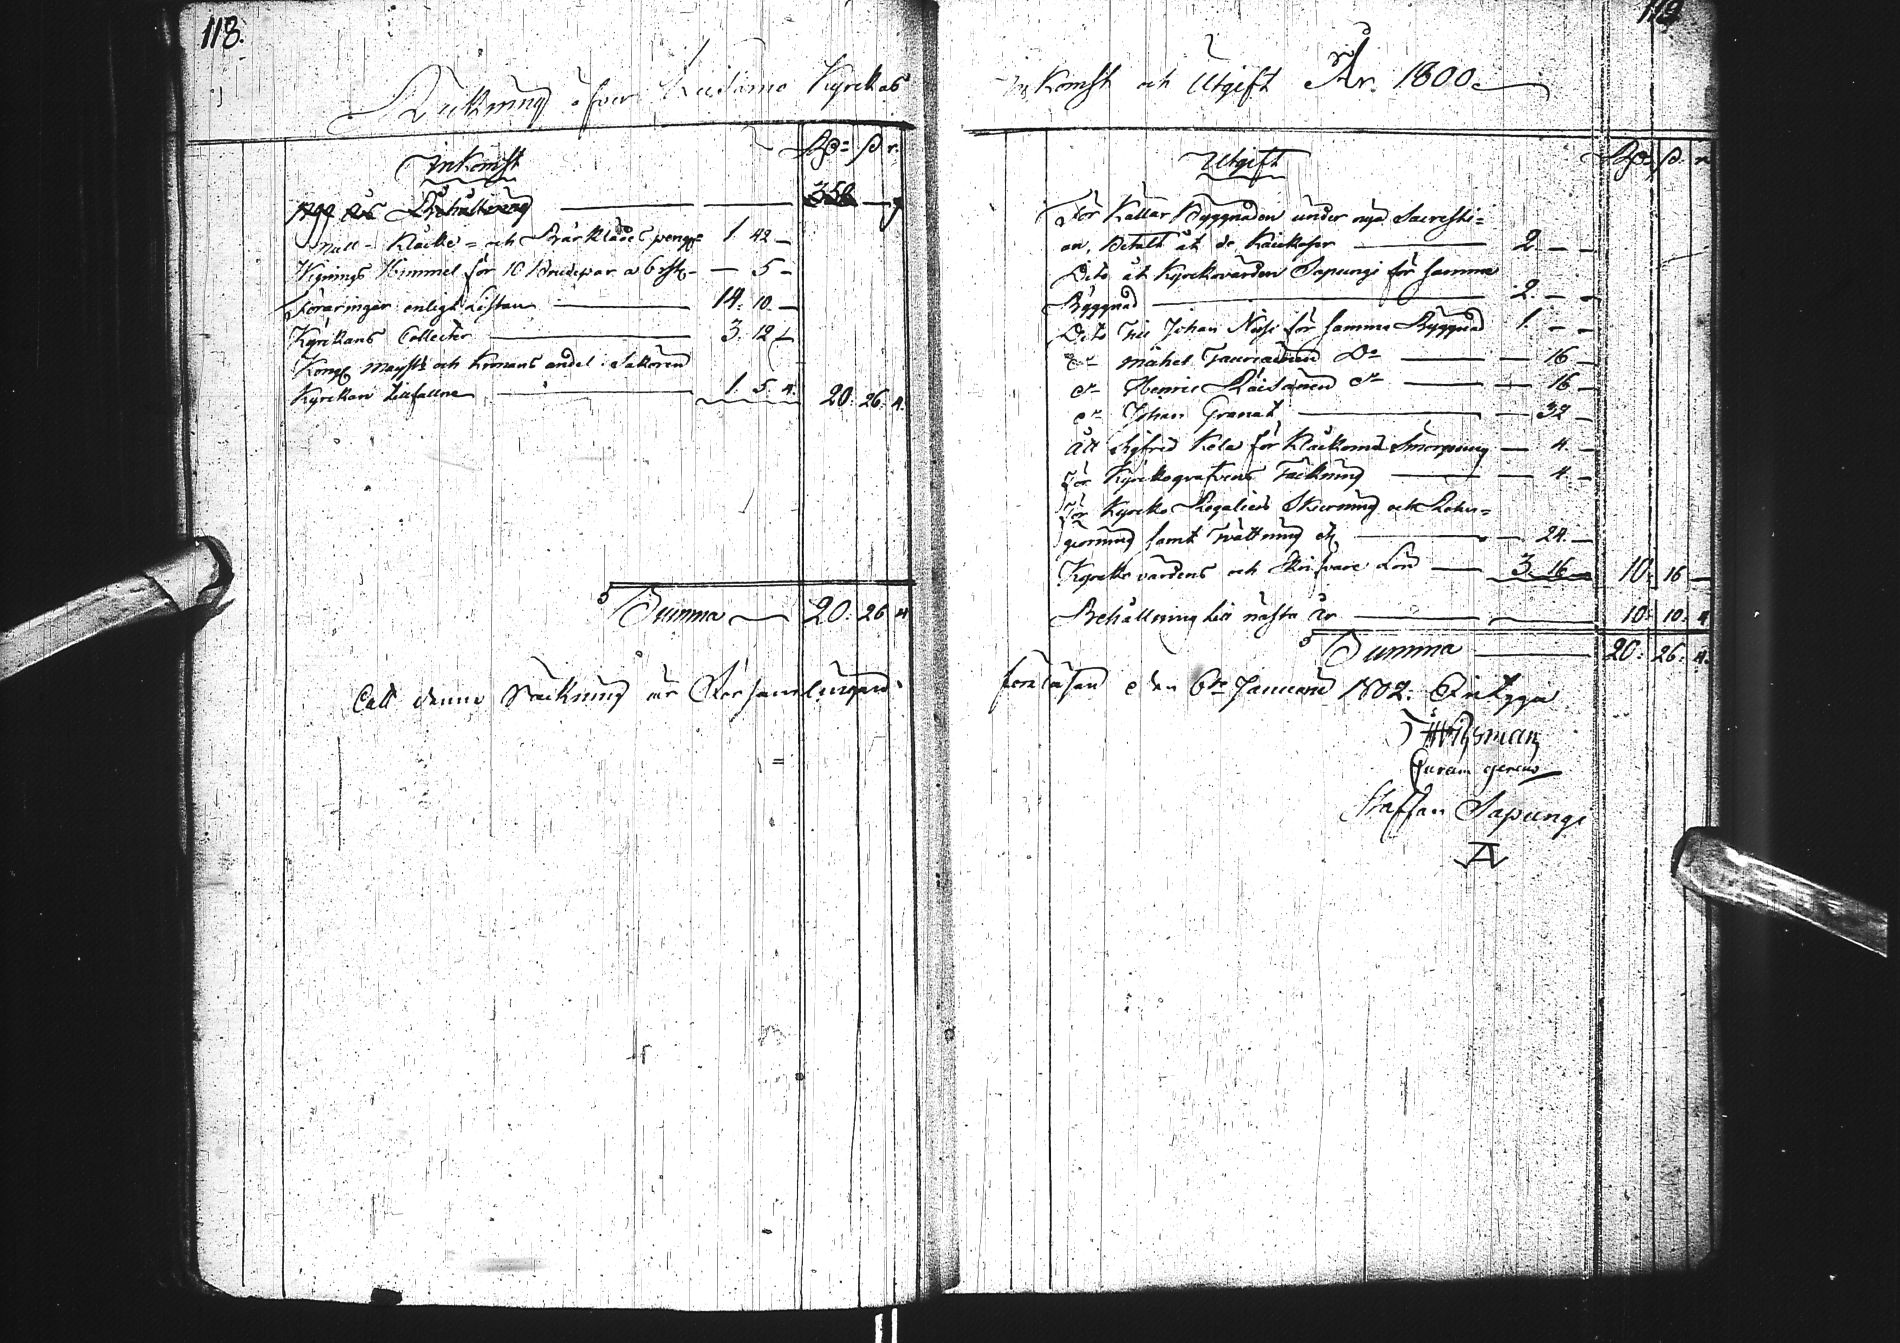 118.
Räckning öfver Kuusamo Kyrckas
Inkomst
Rd: ß r.
1799 års Behållning
Mull- Klåcke- och Bårklädes peng:r 1. 42 -
Wignings Himmel för 10 Brudepar a 6 rst: - 5 -
Föräringar enligt Listan 14. 10. -
Kyrckans Collecter 3. 12 -
Kongl. Mayst:s och Kronans andel i Sakören
Kyrckan tillfallne 1. 5. 4. 20. 26. 4.
Summa 20. 26 4
Att denna Räckning är Församlingen
119
Inkomst och Utgift År. 1800.
Utgift
Rd: ß. r
För Källar Byggnaden under nya Sacresti=
an, Betalt åt de 2. - -
Dito åt Kyrckovärden Sapungi för samma
Byggnad 2. - -
Dito Till Johan Nissi för samma Byggnad 1. - -
d:o Mickel Tauriainen D:o - 16 -
d:o Henric Räisänen d:o - 16 -
d:o Johan Granat - 32 -
Åt Sigfred Kela för Klåckorne Smörjning - 4. -
För Kyrckografvens Täckning - 4. -
För Kyrcko Regaliers Skurning och Rehn=
giörning samt Twättning - 24. -
Kyrcko värdens och Skrifvare Lön 3. 16 - 10. 16 -
Behållning till nästa år 10. 10. 4
Summa 20. 26. 4.
föreläsen den 6:te Januarii 1802. Betygga
Wijsman
Curam gerens
Staffan Sapungi